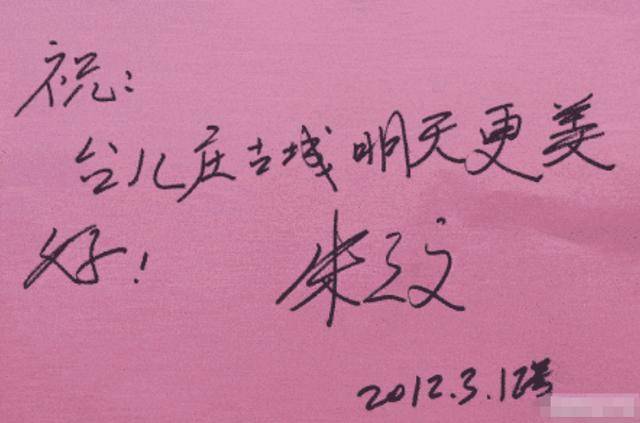 祝：
台儿庄古城明天更美
好！
朱之文
2012.3.12号